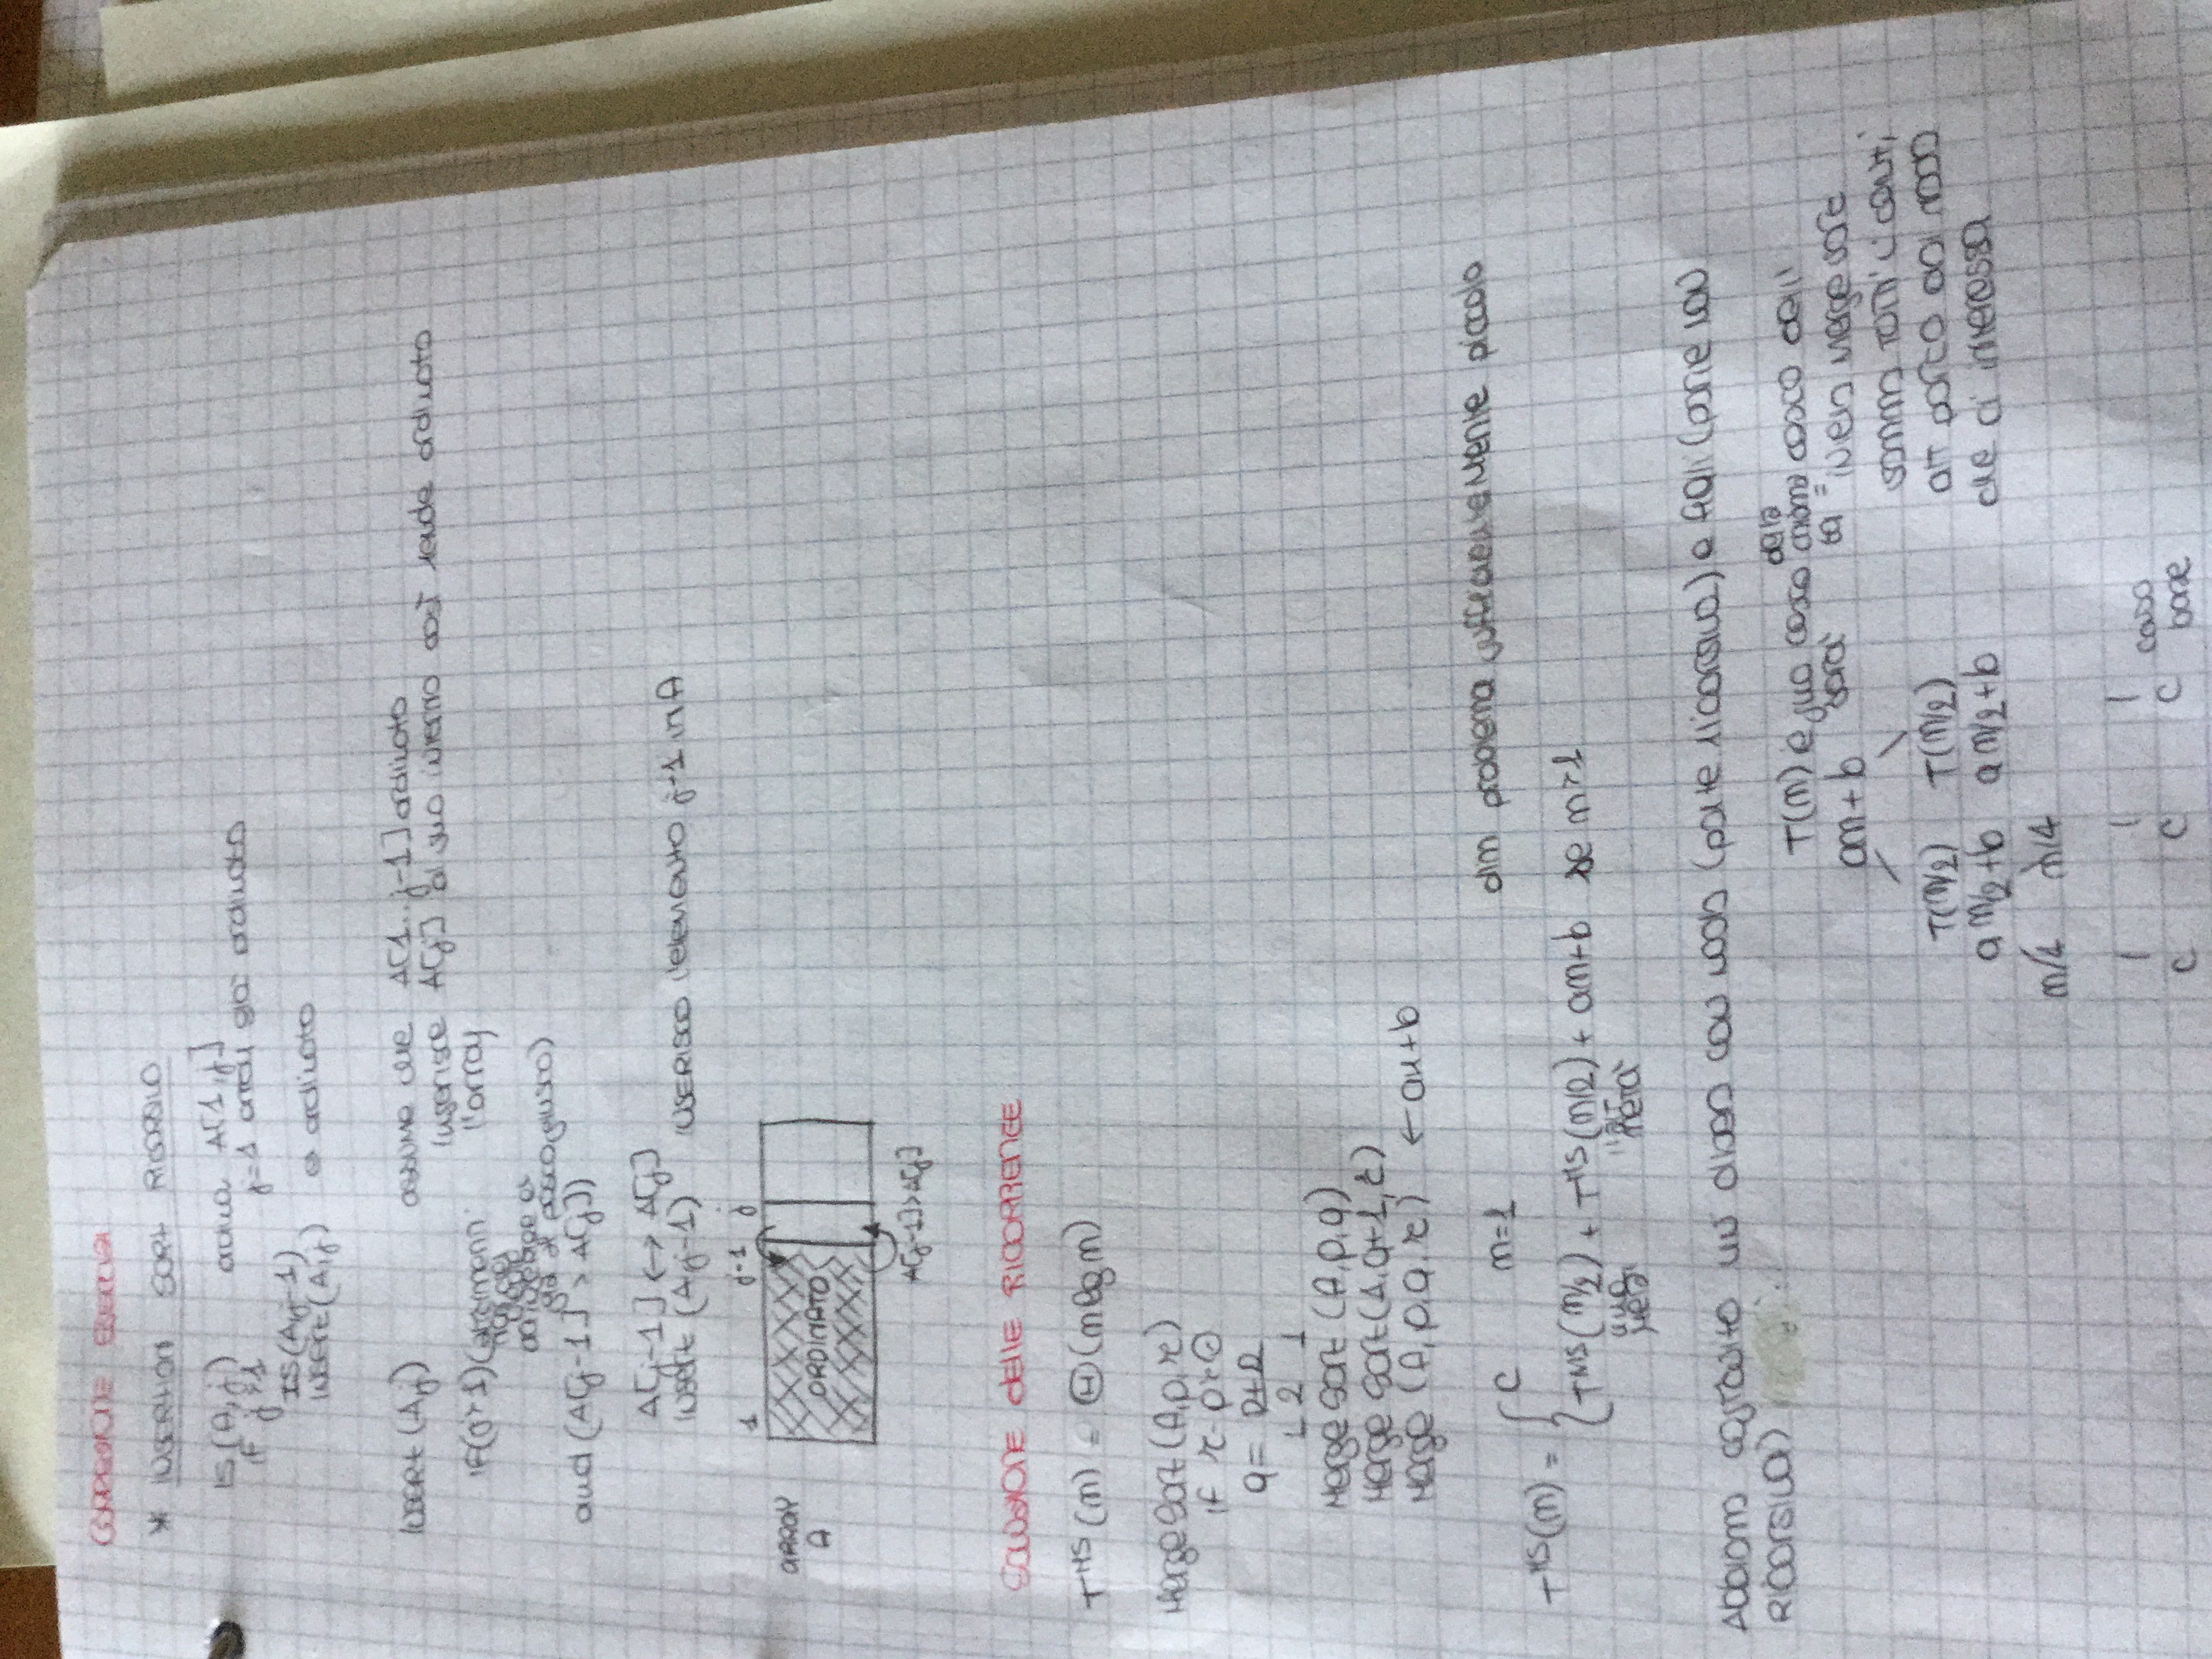 CORREZIONE ESERCIZI
* INSERTION SORT RICORSIVO
IS(A,j) ordina A[1,j]
if j>1 j=1 array già ordinato
IS(A,j-1)
insert(A,j) è ordinato
Insert(A,j) assume che A[1..j-1] ordinato
inserisce A[j] al suo interno così rende ordinato
if(j>1)( l'array
già al posto giusto)
and (A[j-1] > A[j])
A[j-1] ↔ A[j]
insert (A,j-1) INSERISCO l'elemento j-1 in A
1 j-1 j
ARRAY
A
ORDINATO
A[j-1]>A[j]
SOLUZIONE delle RICORRENZE
T^MS(n) = Θ(n lg n)
Merge Sort(A,p,r)
if r-p>0
q = p+r
⌊ 2 ⌋
Merge Sort (A,p,q)
Merge Sort(A,q+1,r)
Merge (A,p,q,r) ← an+b
c n=1 dim problema sufficientemente piccola
T^MS(n) =
T^MS(n/2) + T^MS(n/2) + an+b se n>1
una metà l'alt metà
Abbiamo costruito un albero con nodo (parte ricorsiva) e figli (parte non
RICORSIVA)
T(n) e suo costo della chiamata costo dell'
an+b sarà = intero merge sort
sommo tutti i conti
T(n/2) T(n/2) a partire dal nodo
a n/2+b a n/2+b che ci interessa
n/4 n/4
c c c caso
base